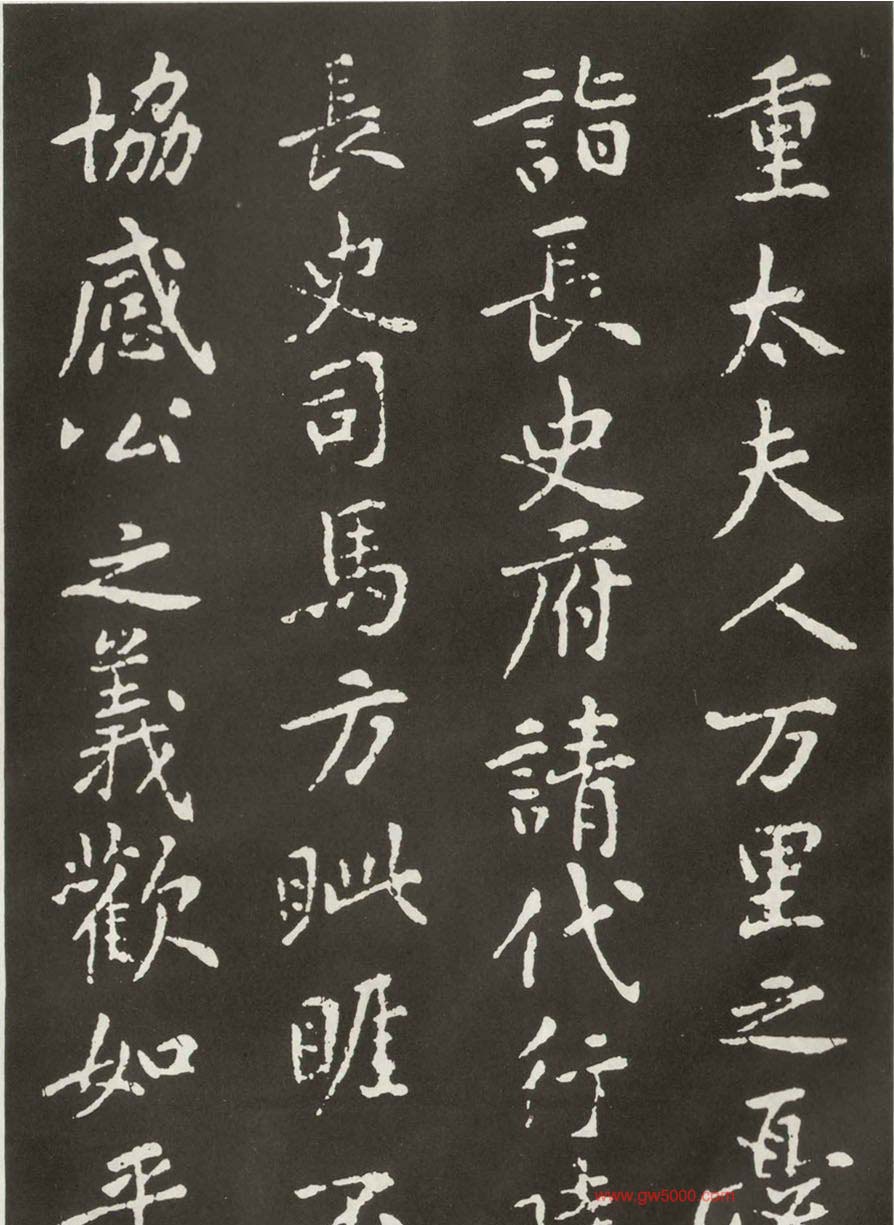 重太夫人万里之憂
詣長史府請代行
長史司馬方眦睚不
協感公之義歡如平
www.gw5000.com